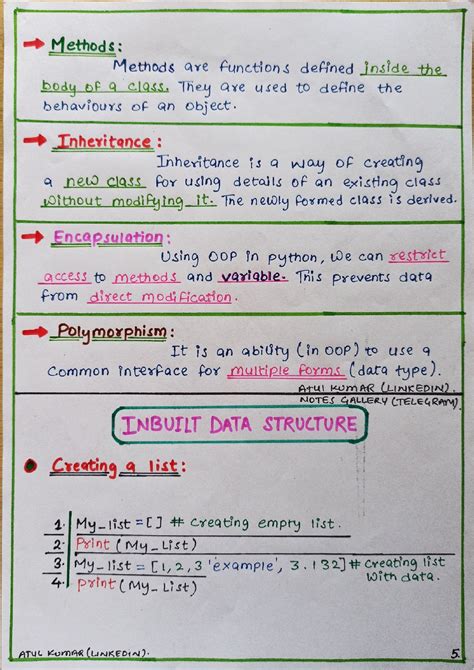 → Methods:
Methods are functions defined inside the
body of a class. They are used to define the
behaviours of an object.
→ Inheritance:
Inheritance is a way of creating
a new class for using details of an existing class
without modifying it. The newly formed class is derived.
→ Encapsulation:
Using OOP in python, We can restrict
access to methods and variable. This prevents data
from direct modification.
→ Polymorphism:
It is an ability (in OOP) to use a
Common interface for multiple forms (data type).
ATUL KUMAR (LINKEDIN).
NOTES GALLERY (TELEGRAM)
INBUILT DATA STRUCTURE
● Creating a list:
1. My_list = [ ] # Creating empty list.
2. Print (My_List)
3. My_list = [1, 2, 3 'example', 3.132] # Creating list
with data.
4. print (My_List)
ATUL KUMAR (LINKEDIN).
5.